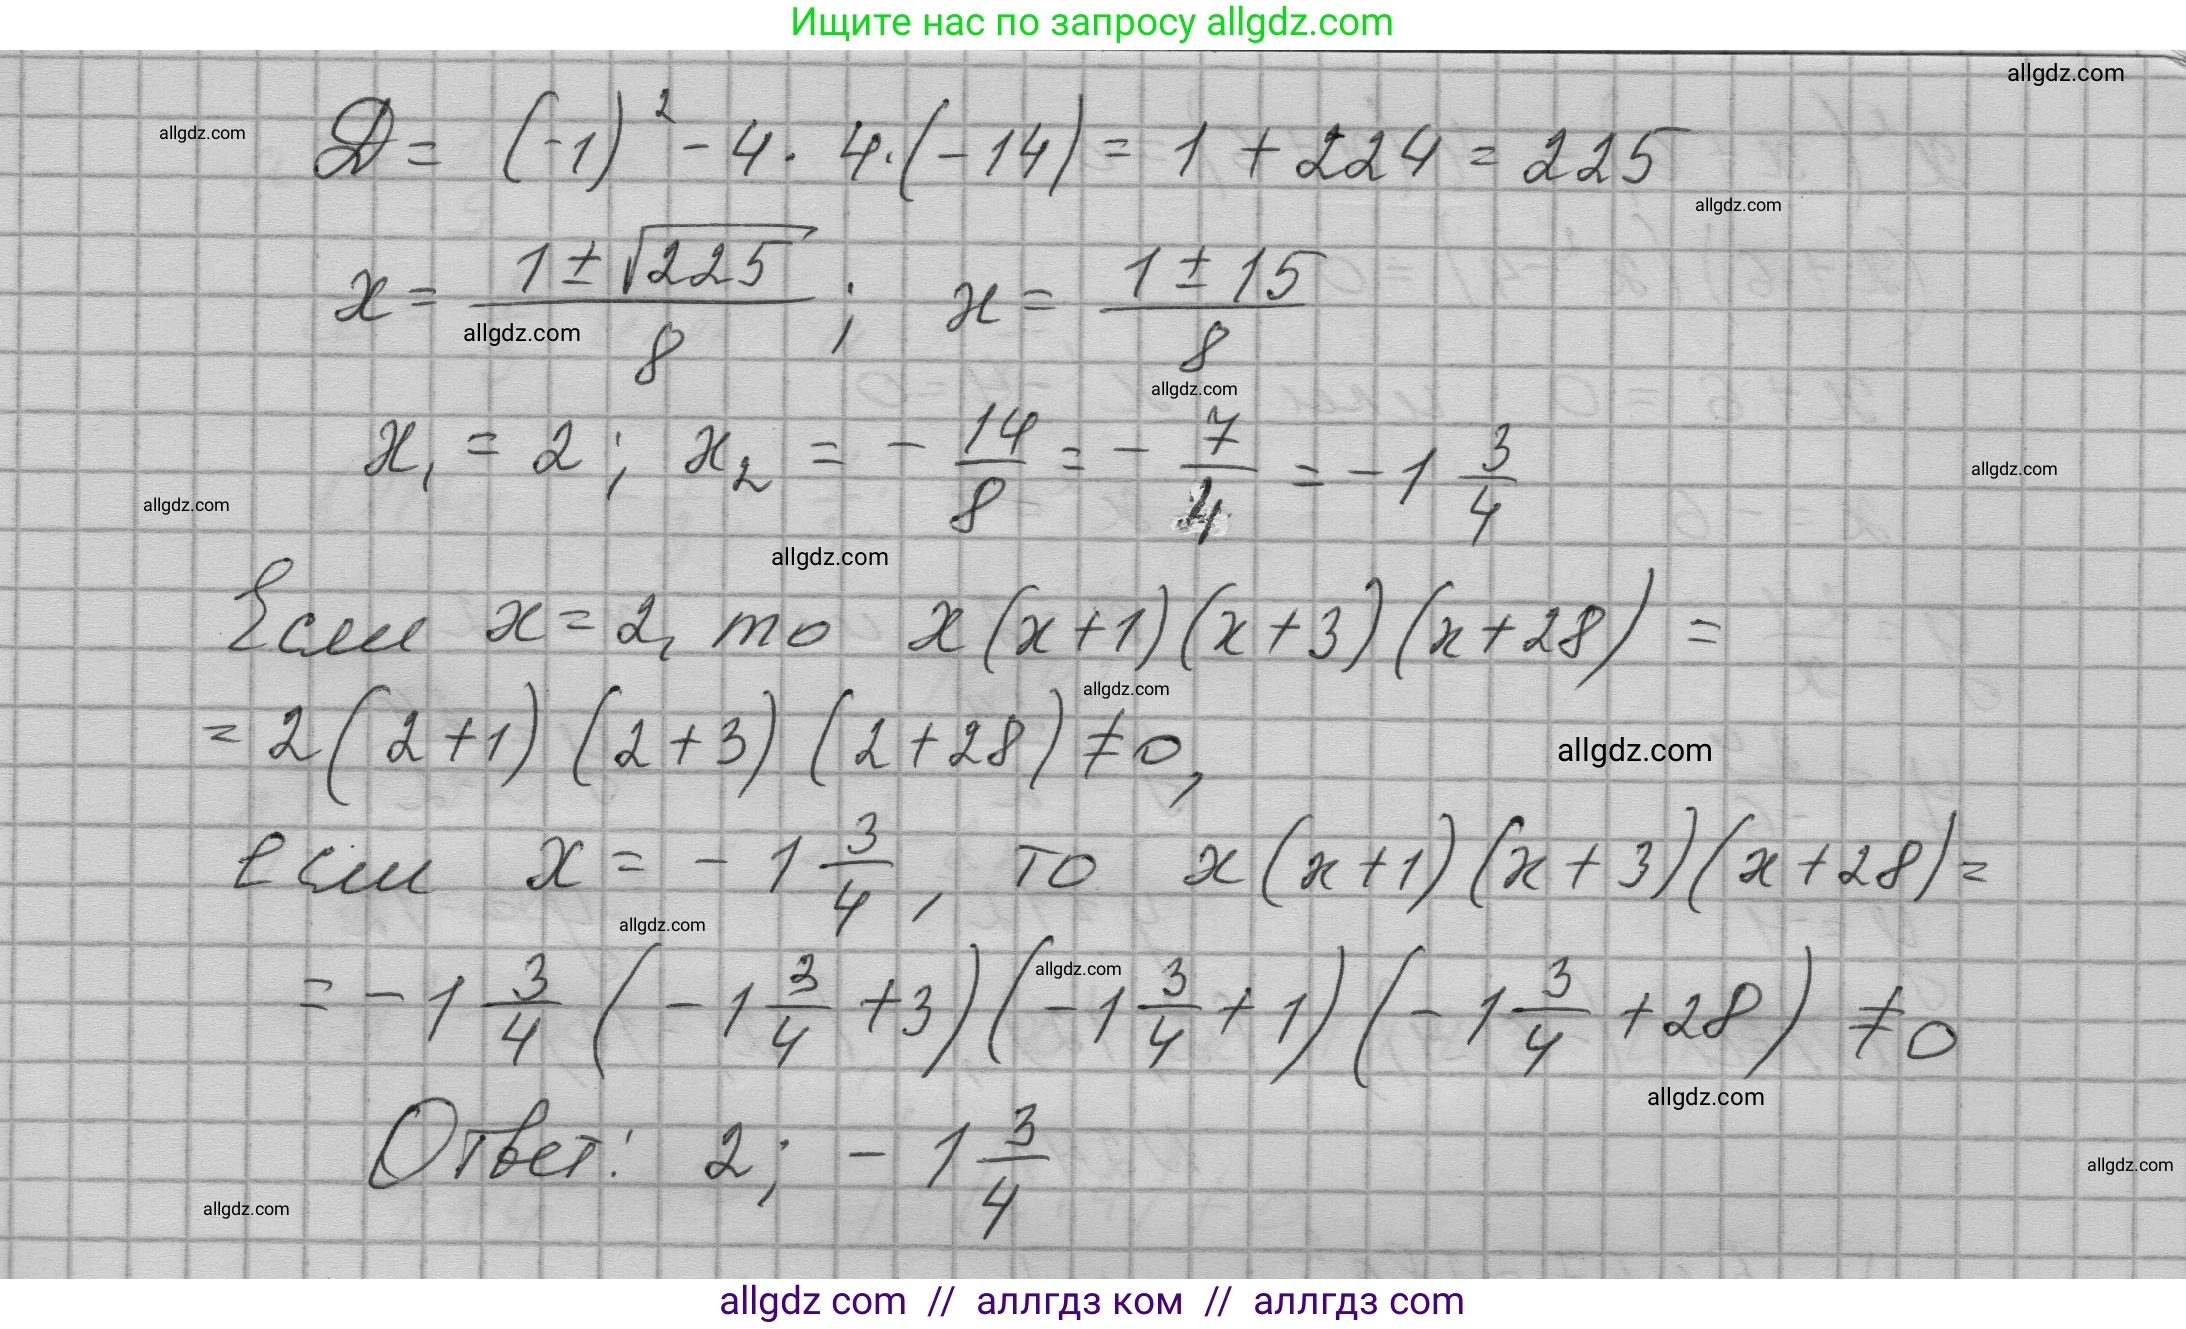 Ищите нас по запросу allgdz.com
allgdz.com
allgdz.com
D = (-1)² - 4 · 4 · (-14) = 1 + 224 = 225
allgdz.com
x = (1 ± √225)/8 ; x = (1 ± 15)/8
allgdz.com
allgdz.com
x₁ = 2 ; x₂ = - 14/8 = - 7/4 = -1 3/4
allgdz.com
allgdz.com
allgdz.com
Если x = 2, то x(x+1)(x+3)(x+28) =
allgdz.com
= 2(2+1)(2+3)(2+28) ≠ 0,
allgdz.com
если x = -1 3/4, то x(x+1)(x+3)(x+28) =
allgdz.com
allgdz.com
= -1 3/4 (-1 3/4 + 3)(-1 3/4 + 1)(-1 3/4 + 28) ≠ 0
allgdz.com
Ответ: 2; -1 3/4
allgdz.com
allgdz.com
allgdz com // аллгдз ком // аллгдз com